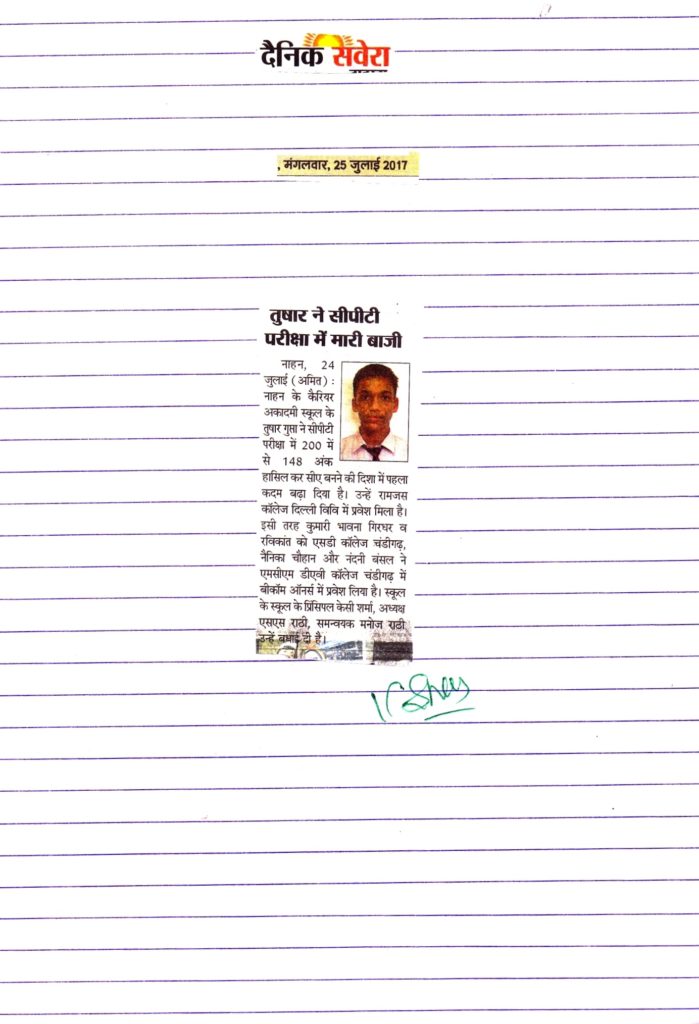 दैनिक सवेरा
, मंगलवार, 25 जुलाई 2017
तुषार ने सीपीटी
परीक्षा में मारी बाजी
नाहन, 24
जुलाई (अमित) :
नाहन के कैरियर
अकादमी स्कूल के
तुषार गुप्ता ने सीपीटी
परीक्षा में 200 में
से 148 अंक
हासिल कर सीए बनने की दिशा में पहला
कदम बढ़ा दिया है। उन्हें रामजस
कॉलेज दिल्ली विवि में प्रवेश मिला है।
इसी तरह कुमारी भावना गिरधर व
रविकांत को एसडी कॉलेज चंडीगढ़,
नैनिका चौहान और नंदनी बंसल ने
एमसीएम डीएवी कॉलेज चंडीगढ़ में
बीकॉम ऑनर्स में प्रवेश लिया है। स्कूल
के स्कूल के प्रिंसिपल केसी शर्मा, अध्यक्ष
एसएस राठी, समन्वयक मनोज राठी
उन्हें बधाई दी है।